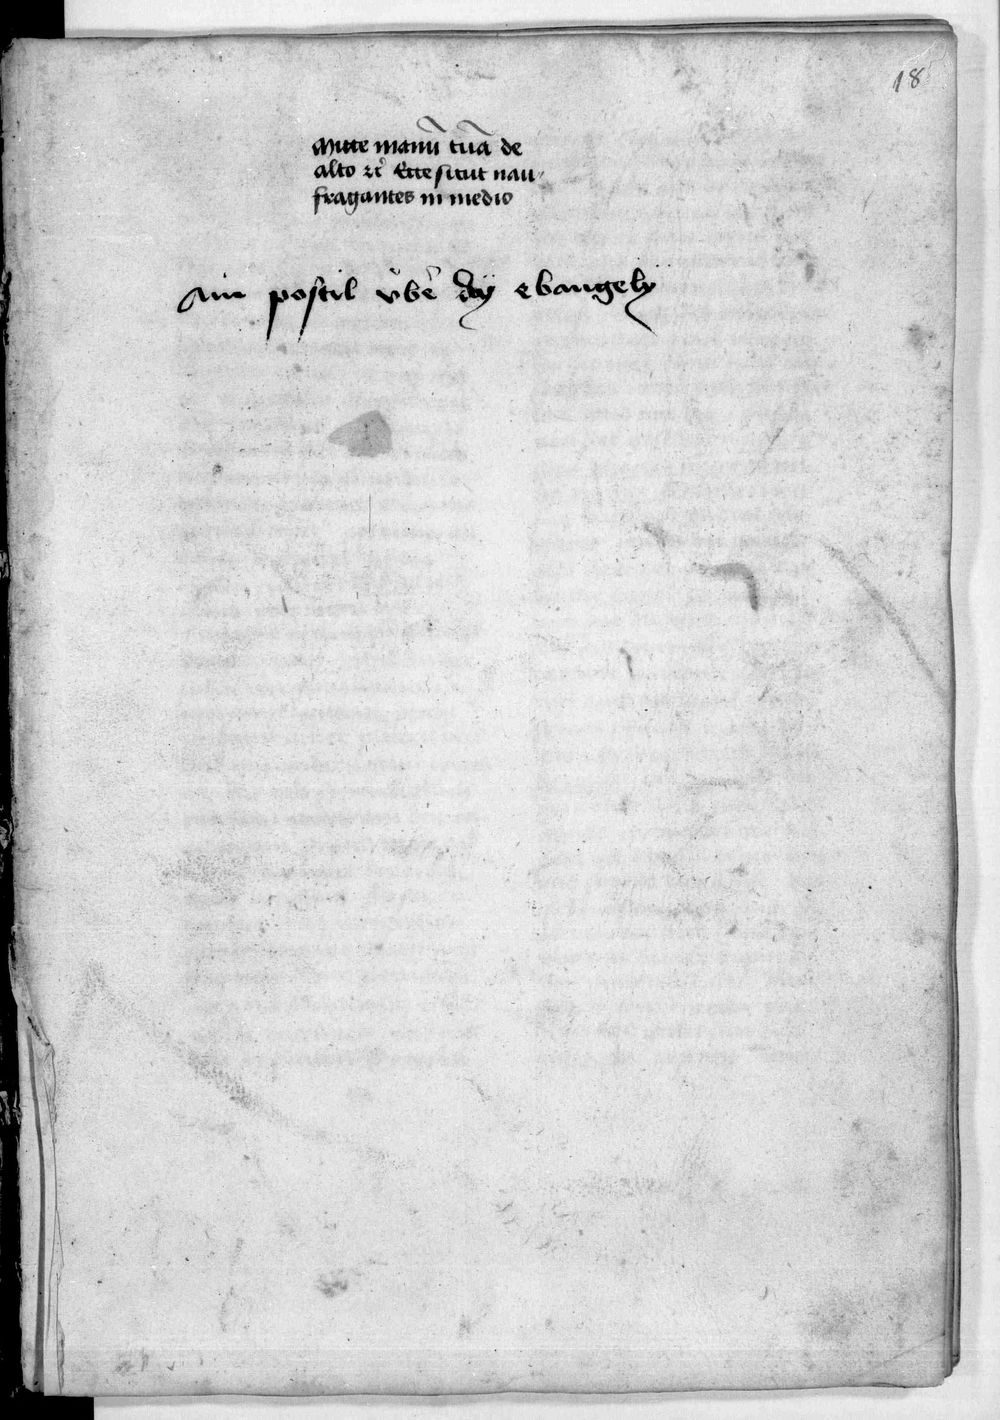 18
Mitte manū tuā de
alto ꝛcͣ Ecce sicut nau-
fragantes in medio
Ain postil vbē dÿ ebangely